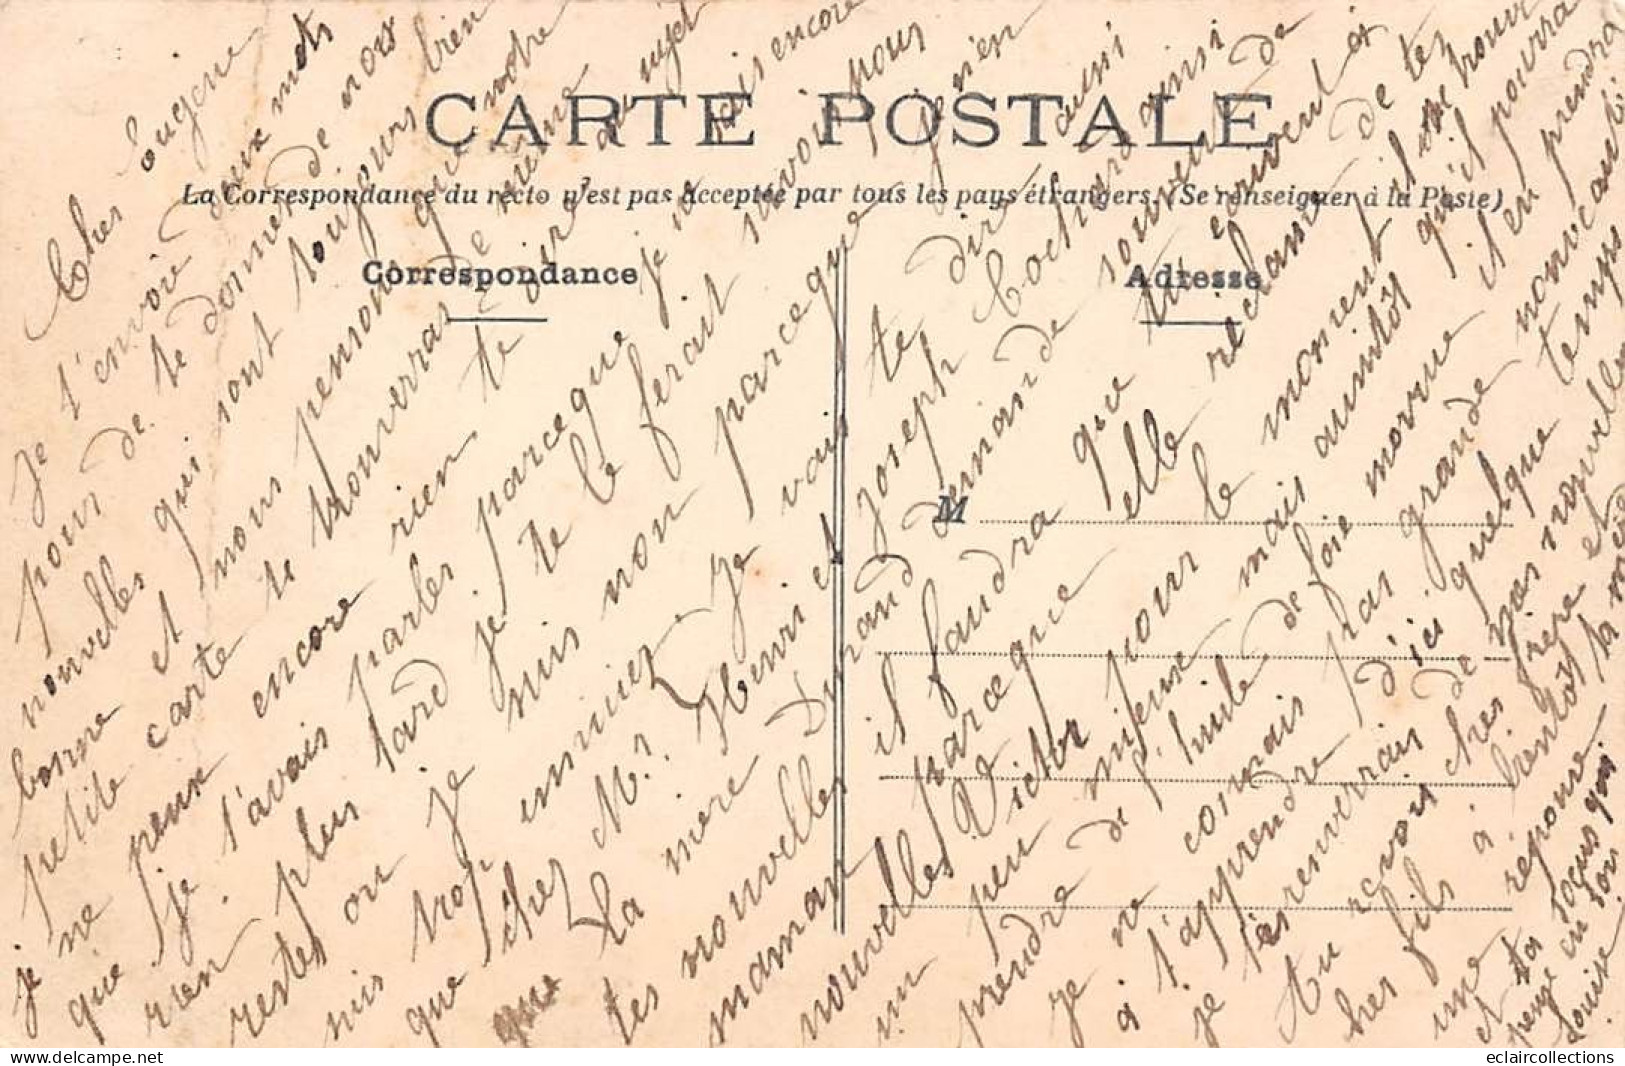 CARTE POSTALE
La Correspondance du recto n'est pas acceptée par tous les pays étrangers. (Se renseigner à la Poste)
Correspondance
Adresse
M
Cher Eugene
Je t'envoie deux mots
pour te donner de nos
nouvelles qui sont toujours bien
bonne et nous pensons que notre
petite carte te trouveras de même
je ne peux encore rien te dire au sujet
que je t'avais parler parceque je ne sais encore
rien. plus tard je te le ferait savoir pour
restes ou je suis non parceque je n'en
suis trop ennuier. Je vais te dire aussi
que chez Mr Henri et Joseph Cochard ainsi
que La mère Durand demande souvent de
tes nouvelles il faudra que tu écrivent à
maman parceque elle réclame de tes
nouvelles Victor pour le moment il se trouve
un peu mieux mais aussitôt qu'il pourra
prendre de l'huile de foie morrue il en prendra
je ne connais pas grande nouveauté
à t'apprendre d'ici quelque temps
je t'enverrais de nos nouvelles
Au revoir cher frère et
cher fils à bientôt
une réponse
et ta soeur qui
pense en toi
Louise
eclaircollections